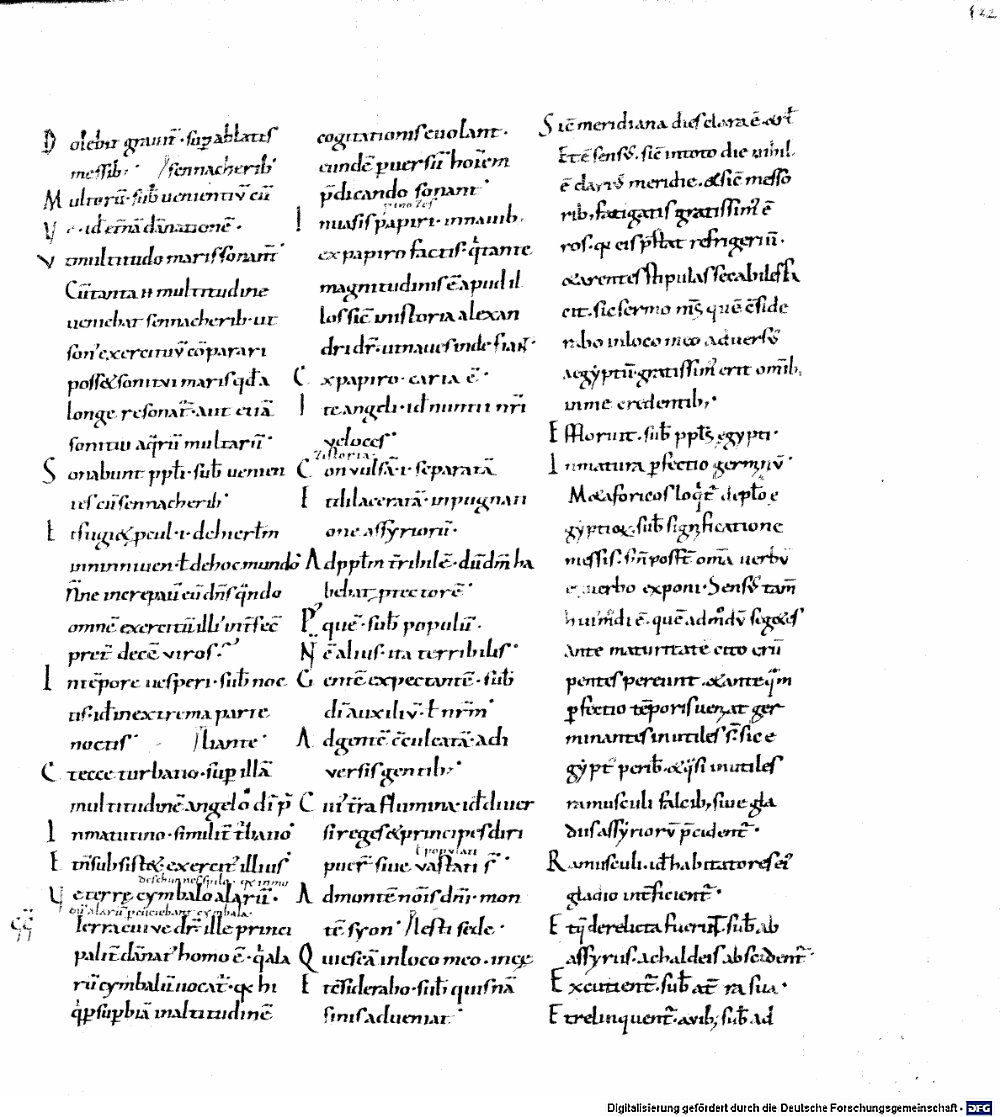 122
D olebit grauit̄· sup ablatis
messib;· sennacherib·
M ulterū· sub̄ uenientiū cū
V e· id ēt̄nā dānationē·
V t multitudo maris sonant̄·
Cū tanta .n. multitudine
ueniebat sennacherib· ut
son' exercituū cōparari
poss& sonitui maris qd̄ a
longe resonat̄· aut etiā
sonitui aq̄rū multarū·
S onabunt ppl̄i· sub̄ uenien
tes cū sennacherib·
E t fugi& pcul· .i. de hierl̄m
in niniuen· ł de hoc mundo
H̄ne increpauit eū dn̄s q̄ndo
omnē exercitū illi' int̄fec̄
pret̄ decē uiros·
I n tēpore uesperi· sub̄ noc
tis· id̄ in extrema parte
noctis· hante·
C t ecce turbatio· sup illā
multitudinē angelo di p̄
I n matutino· similit̄ t̄batio·
E t n̄ subsist& exercit' illius·
V e terrę cymbalo alarū·
Terra cui ve dr̄ ille princi
palit̄ dānat' homo ē· q̄ ala
rū cymbalū uocat̄· qx hi
q̄ p supbiā in altitudinē
cogitationis euolant·
eundē puersū hoīem
p̄dicando sonant·
I n uasis papiri· in nauib;
ex papiro factis· q̄ tante
magnitudinis ē apud il
los sic̄ in istoria alexan
dri dr̄· ut naues inde fiant·
C x papiro· caria ē·
I te angeli· id̄ nuntii nr̄i
veloces·
C onvulsā· .i. separatā
E t dilaceratā· inpugnati
one assyriorū·
A d ppl̄m t̄ribilē· dū dm̄ ha
bebat ptectorē·
P' quē· sub̄ populū·
N̄ ē alius· ita terribilis·
G entē expectantē· sub̄
di auxiliū· ł nr̄m·
A d gentē c̄culcatā· ad
versis gentib;·
C ui' t̄ra flumina· id̄ diuer
si reges & principes diri
puer̄· siue vastati s̄·
A d montē nōis dn̄i· mon
tē syon· Nesti sede·
Q uiescā in loco meo· in ęc̄
E t c̄siderabo· sub̄ quis nā
sinis adueniat·
S ic̄ meridiana dies clara ē·
Et ē sens'· sic̄ in toto die nihil
ē clarius meridie· & sic̄ messo
rib; fatigatis gratissim' ē
ros· qx eis p̄stat refrigeriū·
& arentes stipulas secabiles fa
cit· sic sermo m̄s quē c̄side
rabo in loco meo adversū
aegyptū· gratissim' erit om̄ib;
in me credentib;·
E ffloruit· sub̄ ppl̄s egypti·
I nmatura pfectio germinū·
M&aforicos loq̄t̄ de pplo e
gyptiox· sub̄ significatione
messis· sn̄ post̄ om̄a uerbū
e uerbo exponi· Sens' tam̄
huim̄di ē· quē admodū seg&es
ante maturitatē cito erū
pentes pereunt· & ante q̄m
pfectio tēporis ueniat ger
minantes inutiles s̄· sic e
gypt' perib̄· & q̄si inutiles
ramusculi falcib; siue gla
diis assyriorū p̄cident̄·
R amusculi· id̄ habitatores ei'
gladio int̄ficient̄·
E t q̄ derelicta fuerint· sub̄ ab
assyriis· a chaldeis abscident̄·
E xcutient̄· sub̄ at̄ ra sua·
E t relinquent̄· avib; sub̄ ad
Digitalisierung gefördert durch die Deutsche Forschungsgemeinschaft - DFG